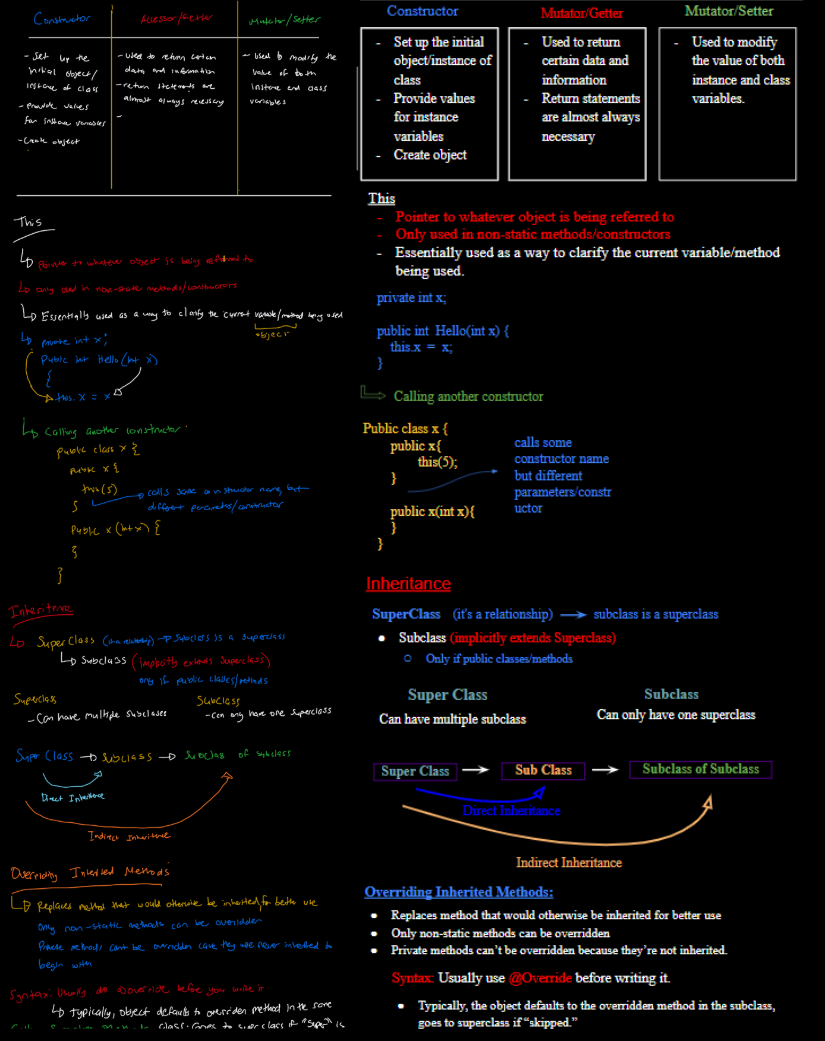 Constructor
Acessor/Getter
Mutator/Setter
- Set up the
initial object/
instance of class
- provide values
for instance variables
- Create object
- used to return certain
data and information
- return statements are
almost always necessary
-
- Used to modify the
value of both
instance and class
variables
This
Pointer to whatever object is being referred to
only used in non-static methods/constructors
Essentially used as a way to clarify the current variable/method being used
object
private int x;
Public int Hello (int x)
{
this.x = x
Calling another constructor:
public class x {
public x {
this(5)
}
calls some constructor name, but
different parameter/constructor
public x (int x) {
}
}
Inheritance
SuperClass (is a relationship) → Subclass is a superclass
Subclass (implicitly extends superclass)
only if public classes/methods
Superclass
- Can have multiple subclasses
Subclass
- can only have one superclass
Super Class → Subclass → Subclass of subclass
Direct Inheritance
Indirect Inheritance
Overriding Inherited Methods
Replaces method that would otherwise be inherited for better use
only non-static methods can be overridden
Private methods can't be overridden cause they are never inherited to
begin with
Syntax: Usually @override before you write it
typically, object defaults to overriden method in the same
class. Goes to superclass if "super" is
Constructor
Mutator/Getter
Mutator/Setter
- Set up the initial
object/instance of
class
- Provide values
for instance
variables
- Create object
- Used to return
certain data and
information
- Return statements
are almost always
necessary
- Used to modify
the value of both
instance and class
variables.
This
- Pointer to whatever object is being referred to
- Only used in non-static methods/constructors
- Essentially used as a way to clarify the current variable/method
being used.
private int x;
public int Hello(int x) {
this.x = x;
}
Calling another constructor
Public class x {
public x{
this(5);
}
public x(int x){
}
}
calls some
constructor name
but different
parameters/constr
uctor
Inheritance
SuperClass (it's a relationship) → subclass is a superclass
● Subclass (implicitly extends Superclass)
○ Only if public classes/methods
Super Class
Can have multiple subclass
Subclass
Can only have one superclass
Super Class → Sub Class → Subclass of Subclass
Direct Inheritance
Indirect Inheritance
Overriding Inherited Methods:
● Replaces method that would otherwise be inherited for better use
● Only non-static methods can be overridden
● Private methods can't be overridden because they're not inherited.
Syntax: Usually use @Override before writing it.
● Typically, the object defaults to the overridden method in the subclass,
goes to superclass if "skipped."